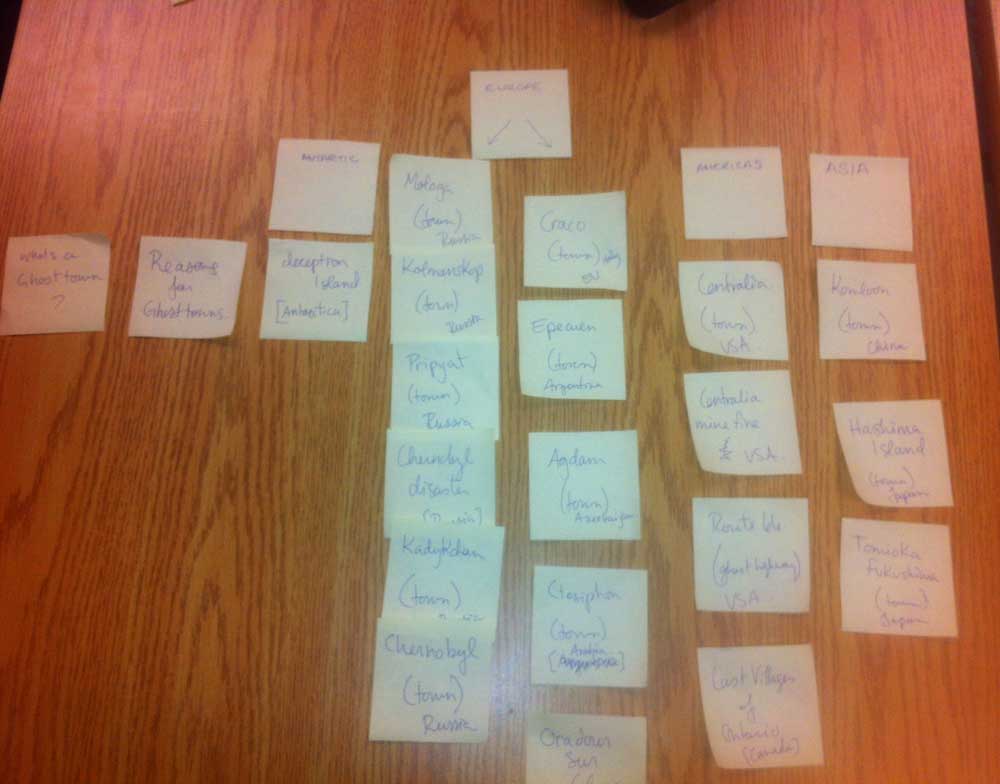 EUROPE
ANTARTIC
AMERICAS
ASIA
What's a
Ghost town
?
Reasons
for
Ghost towns
deception
Island
[Antarctica]
Mologa
(town)
Russia
Kolmanskop
(town)
Russia
Pripyat
(town)
Russia
Chernobyl
disaster
Kadykchan
(town)
Chernobyl
(town)
Russia
Craco
(town)
Epecuen
(town)
Argentina
Agdam
(town)
Azerbaijan
Ctesiphon
(town)
Arabia
Oradour
Sur
Centralia
(town)
USA
Centralia
mine fire
USA
Route 66
(ghost highway)
USA
Lost Villages
of
Ontario
[Canada]
Kowloon
(town)
China
Hashima
Island
(town)
Japan
Tomioka
Fukushima
(town)
Japan